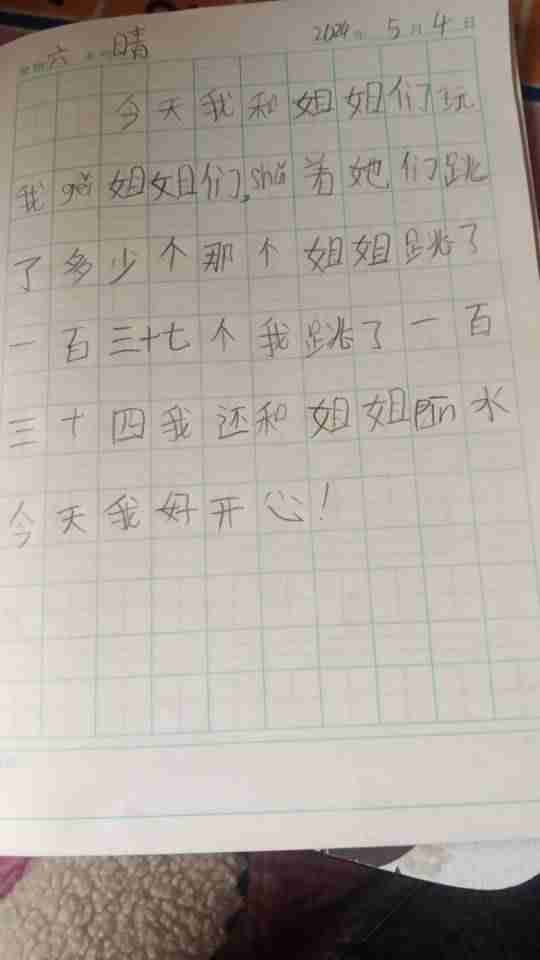 星期六 晴 2024年5月4日
今天我和姐姐们玩
我gěi姐姐们,shǔ着她们跳
了多少个那个姐姐跳了
一百三十七个我跳了一百
三十四我还和姐姐 水
今天我好开心!